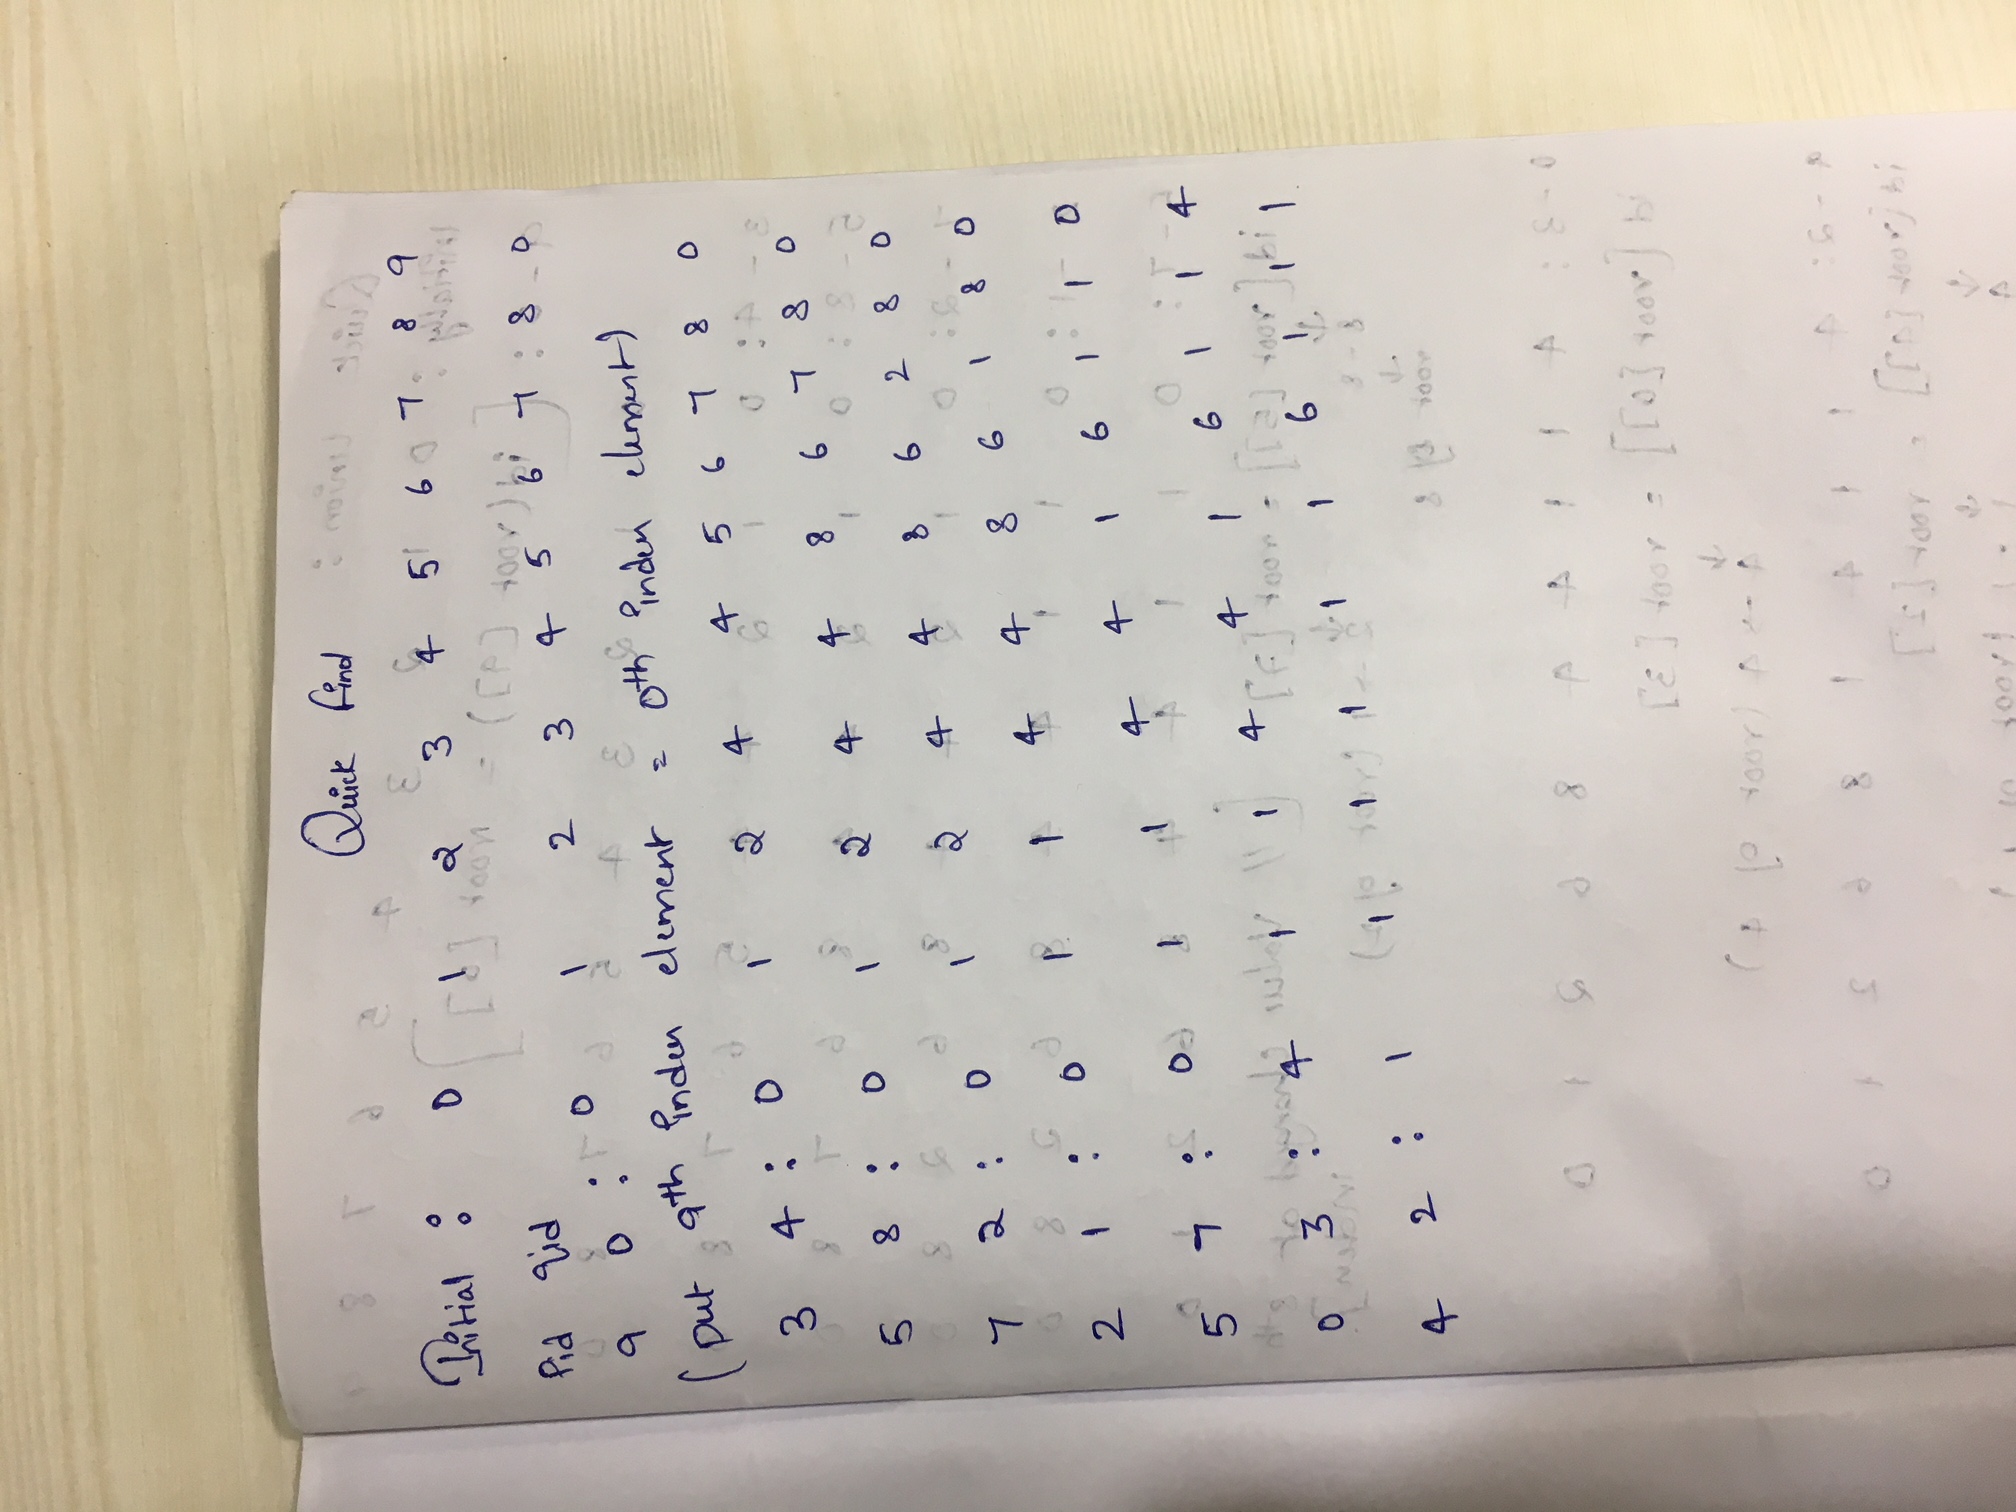 Quick find
Initial : 0 1 2 3 4 5 6 7 8 9
Pid qid
9 0 : 0 1 2 3 4 5 6 7 8 0
(put 9th index element = 0th index element)
3 4 : 0 1 2 4 4 5 6 7 8 0
5 8 : 0 1 2 4 4 8 6 7 8 0
7 2 : 0 1 2 4 4 8 6 2 8 0
2 1 : 0 1 1 4 4 8 6 1 8 0
5 7 : 0 1 1 4 4 1 6 1 1 0
0 3 : 4 1 1 4 4 1 6 1 1 4
4 2 : 1 1 1 1 1 1 6 1 1 1